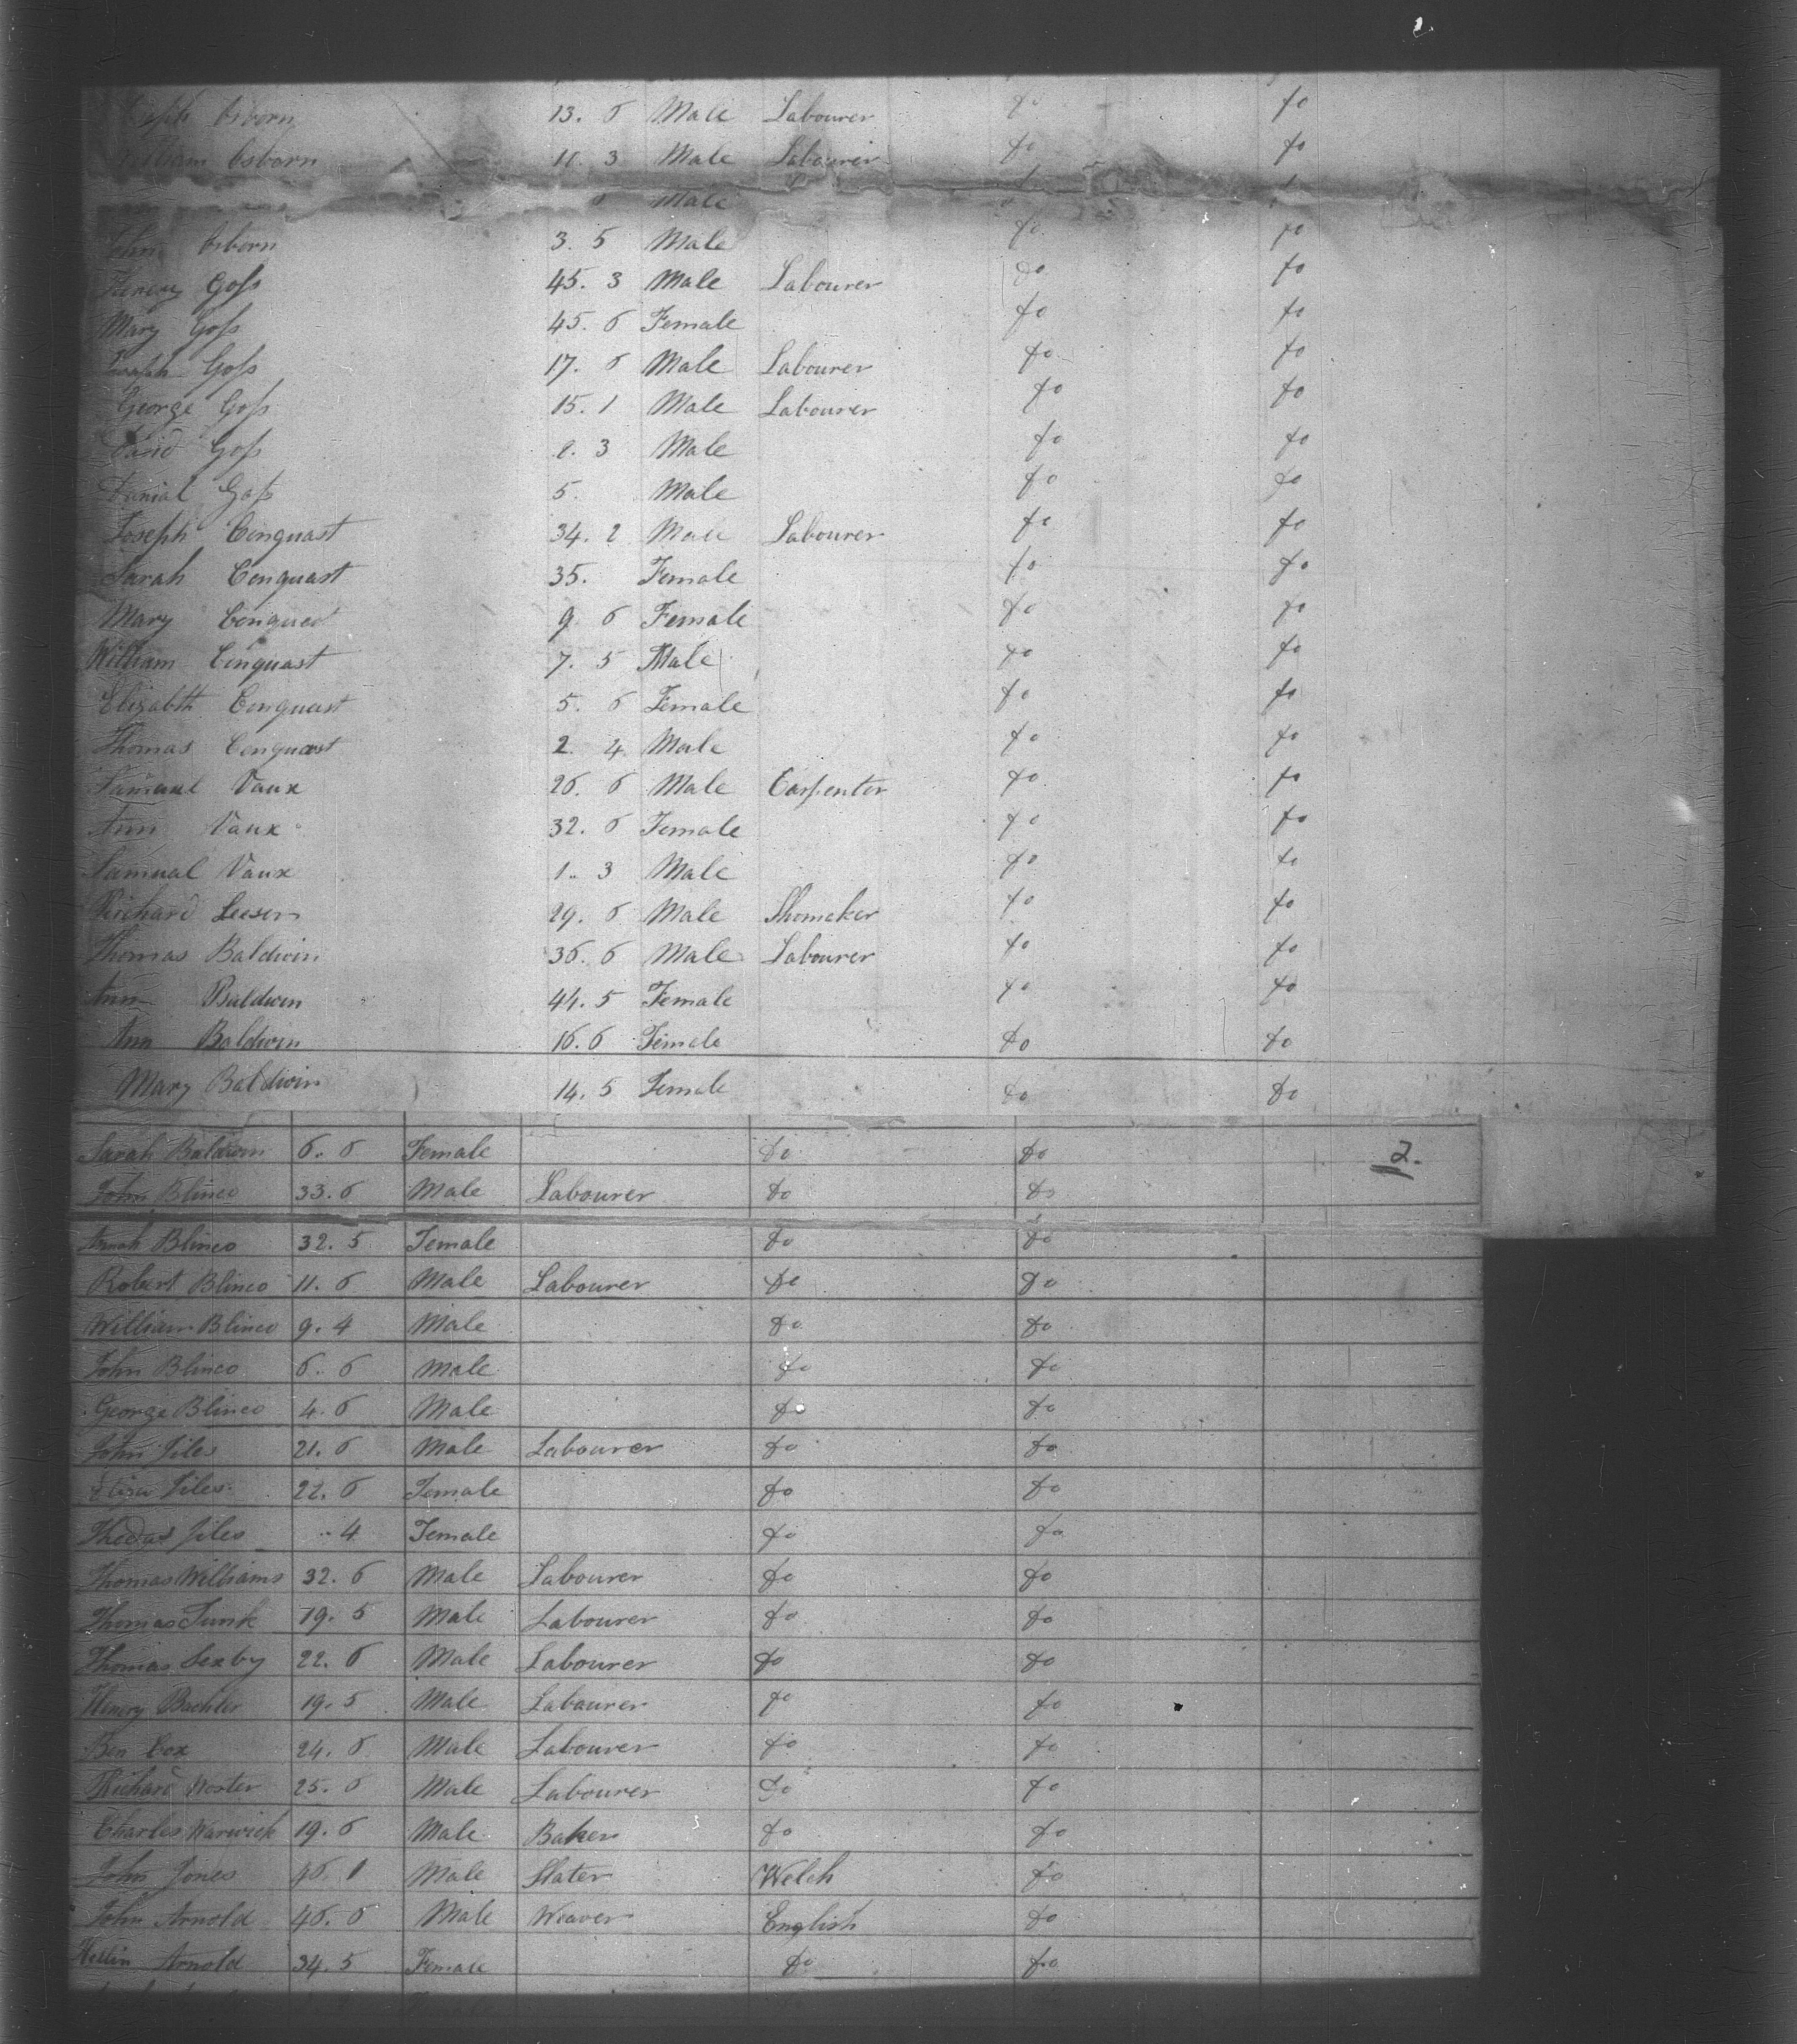 Joseph Osborn 13. 6 Male Labourer do do
William Osborn 11. 3 Male Labourer do do
6 Male
John Osborn 3. 5 Male do do
Henery Goss 45. 3 Male Labourer do do
Mary Goss 45. 6 Female do do
Joseph Goss 17. 6 Male Labourer do do
George Goss 15. 1 Male Labourer do do
David Goss 3 Male do do
Danial Goss 5. Male do do
Joseph Conquast 34. 2 Male Labourer do do
Sarah Conquast 35. Female do do
Mary Conquest 9. 6 Female do do
William Conquast 7. 5 Male do do
Elizabth Conquest 5. 6 Female do do
Thomas Conquast 2. 4 Male do do
Samuel Vaux 26. 6 Male Carpenter do do
Ann Vaux 32. 6 Female do do
Samual Vaux 1. 3 Male do do
Richard Leeson 29. 6 Male Shomaker do do
Thomas Baldwin 36. 6 Male Labourer do do
Ann Baldwin 44. 5 Female do do
Ann Baldwin 16. 6 Female do do
Mary Baldwin 14. 5 Female do do
Sarah Baldwin 6. 6 Female do do 2.
John Blinco 33. 6 Male Labourer do do
Blinco 32. 5 Female do do
Robert Blinco 11. 6 Male Labourer do do
William Blinco 9. 4 Male do do
John Blinco 6. 6 Male do do
George Blinco 4. 6 Male do do
John Jiles 21. 6 Male Labourer do do
Eliza Jiles 22. 6 Female do do
Jiles 4 Female do do
Thomas Williams 32. 6 Male Labourer do do
Thomas Tunk 19. 5 Male Labourer do do
Thomas Sexby 22. 6 Male Labourer do do
Henery 19. 5 Male Labourer do do
Ben Cox 24. 6 Male Labourer do do
Richard Worter 25. 6 Male Labourer do do
Charles Warwick 19. 6 Male Baker do do
John Jones 46. 1 Male Slater Welch do
John Arnold 46. 6 Male Weaver English do
Hellin Arnold 34. 5 Female do do